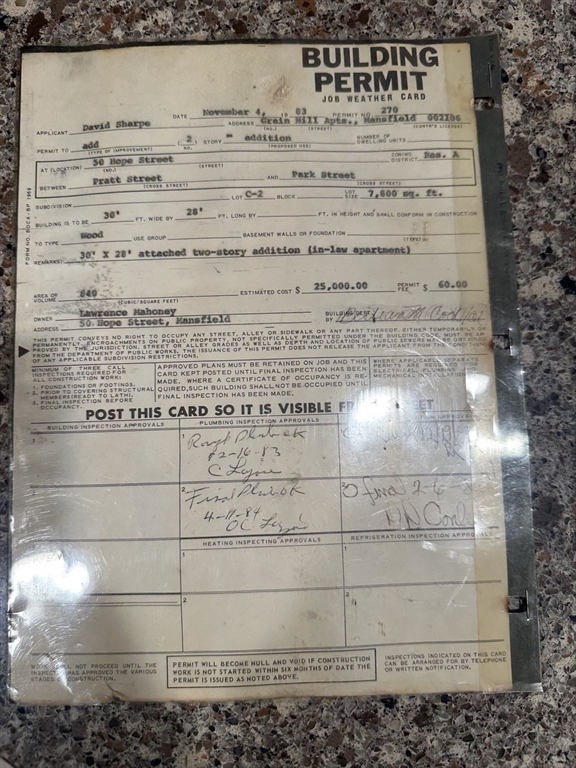 BUILDING
PERMIT
JOB WEATHER CARD
DATE November 4, 1983 PERMIT NO. 270
APPLICANT David Sharpe ADDRESS Grain Mill Apts., Mansfield 002186
(NO.) (STREET) (CONTR'S LICENSE)
PERMIT TO add (2) STORY addition NUMBER OF DWELLING UNITS
(TYPE OF IMPROVEMENT) NO. (PROPOSED USE)
AT (LOCATION) 50 Hope Street ZONING DISTRICT Res. A
(NO.) (STREET)
BETWEEN Pratt Street AND Park Street
(CROSS STREET) (CROSS STREET)
SUBDIVISION LOT C-2 BLOCK LOT SIZE 7,800 sq. ft.
BUILDING IS TO BE 30' FT. WIDE BY 28' FT. LONG BY FT. IN HEIGHT AND SHALL CONFORM IN CONSTRUCTION
TO TYPE Wood USE GROUP BASEMENT WALLS OR FOUNDATION
(TYPE)
REMARKS: 30' X 28' attached two-story addition (in-law apartment)
AREA OR VOLUME 840 ESTIMATED COST $ 25,000.00 PERMIT FEE $ 60.00
(CUBIC/SQUARE FEET)
OWNER Lawrence Mahoney
ADDRESS 50 Hope Street, Mansfield BUILDING DEPT. BY
FORM NO. BOCA-BP 1969
THIS PERMIT CONVEYS NO RIGHT TO OCCUPY ANY STREET, ALLEY OR SIDEWALK OR ANY PART THEREOF, EITHER TEMPORARILY OR
PERMANENTLY. ENCROACHMENTS ON PUBLIC PROPERTY, NOT SPECIFICALLY PERMITTED UNDER THE BUILDING CODE, MUST BE AP-
PROVED BY THE JURISDICTION. STREET OR ALLEY GRADES AS WELL AS DEPTH AND LOCATION OF PUBLIC SEWERS MAY BE OBTAINED
FROM THE DEPARTMENT OF PUBLIC WORKS. THE ISSUANCE OF THIS PERMIT DOES NOT RELEASE THE APPLICANT FROM THE CONDITIONS
OF ANY APPLICABLE SUBDIVISION RESTRICTIONS.
MINIMUM OF THREE CALL
INSPECTIONS REQUIRED FOR
ALL CONSTRUCTION WORK:
1. FOUNDATIONS OR FOOTINGS.
2. PRIOR TO COVERING STRUCTURAL
MEMBERS (READY TO LATH).
3. FINAL INSPECTION BEFORE
OCCUPANCY.
APPROVED PLANS MUST BE RETAINED ON JOB AND THIS
CARD KEPT POSTED UNTIL FINAL INSPECTION HAS BEEN
MADE. WHERE A CERTIFICATE OF OCCUPANCY IS RE-
QUIRED, SUCH BUILDING SHALL NOT BE OCCUPIED UNTIL
FINAL INSPECTION HAS BEEN MADE.
WHERE APPLICABLE SEPARATE
PERMITS ARE REQUIRED FOR
ELECTRICAL, PLUMBING
MECHANICAL INSTALLATIONS
POST THIS CARD SO IT IS VISIBLE FROM STREET
BUILDING INSPECTION APPROVALS
1
2
PLUMBING INSPECTION APPROVALS
1 Rough
12-16-83
2 Final
4-11-84
OK
2 final 2-6-
HEATING INSPECTING APPROVALS
1
2
REFRIGERATION INSPECTION APPROVALS
1
2
WORK SHALL NOT PROCEED UNTIL THE
INSPECTOR HAS APPROVED THE VARIOUS
STAGES OF CONSTRUCTION.
PERMIT WILL BECOME NULL AND VOID IF CONSTRUCTION
WORK IS NOT STARTED WITHIN SIX MONTHS OF DATE THE
PERMIT IS ISSUED AS NOTED ABOVE.
INSPECTIONS INDICATED ON THIS CARD
CAN BE ARRANGED FOR BY TELEPHONE
OR WRITTEN NOTIFICATION.